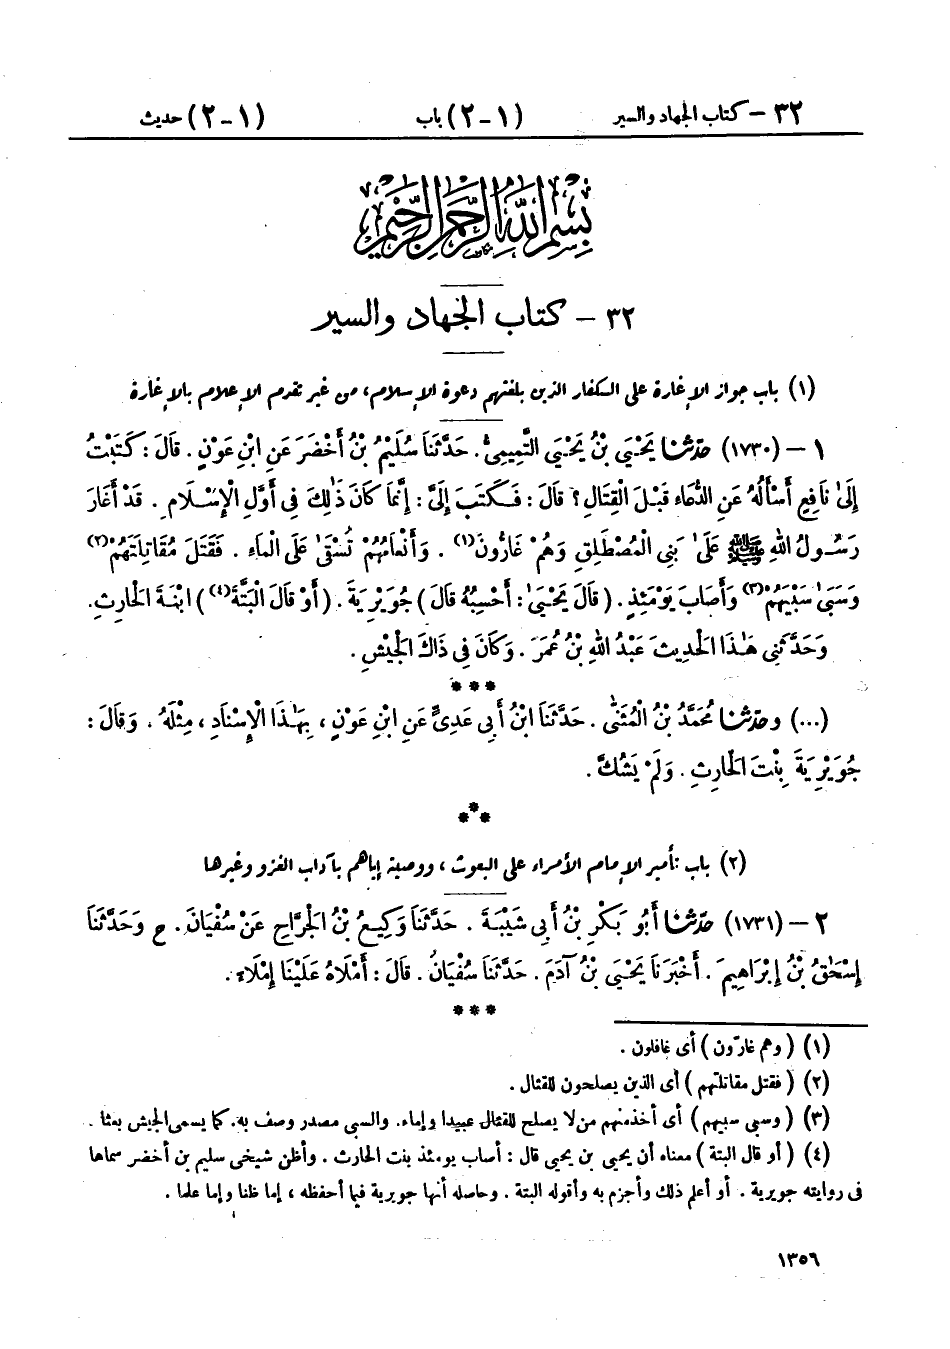 ٣٢ – كتاب الجهاد والسير (١ – ٢) باب (١ – ٢) حديث
بسم الله الرحمن الرحيم
٣٢ – كتاب الجهاد والسير
(١) باب جواز الإغارة على الكفار الذين بلغتهم دعوة الإسلام، من غير تقدم الإعلام بالإغارة
١ – (١٧٣٠) حَدَّثَنَا يَحْيَىٰ بْنُ يَحْيَىٰ التَّمِيمِىُّ. حَدَّثَنَا سُلَيْمُ بْنُ أَخْضَرَ عَنِ ابْنِ عَوْنٍ. قَالَ: كَتَبْتُ
إِلَىٰ نَافِعٍ أَسْأَلُهُ عَنِ الدُّعَاءِ قَبْلَ الْقِتَالِ؟ قَالَ: فَكَتَبَ إِلَىَّ: إِنَّمَا كَانَ ذَٰلِكَ فِى أَوَّلِ الْإِسْلَامِ. قَدْ أَغَارَ
رَسُولُ اللهِ ﷺ عَلَىٰ بَنِى الْمُصْطَلِقِ وَهُمْ غَارُّونَ(١). وَأَنْعَامُهُمْ تُسْقَىٰ عَلَى الْمَاءِ. فَقَتَلَ مُقَاتِلَتَهُمْ(٢)
وَسَبَىٰ سَبْيَهُمْ(٣) وَأَصَابَ يَوْمَئِذٍ. (قَالَ يَحْيَىٰ: أَحْسِبُهُ قَالَ) جُوَيْرِيَةَ. (أَوْ قَالَ الْبَتَّةَ(٤)) ابْنَةَ الْحَارِثِ.
وَحَدَّثَنِى هَٰذَا الْحَدِيثَ عَبْدُ اللهِ بْنُ عُمَرَ. وَكَانَ فِى ذَاكَ الْجَيْشِ.
* * *
(...) وحَدَّثَنَا مُحَمَّدُ بْنُ الْمُثَنَّىٰ. حَدَّثَنَا ابْنُ أَبِى عَدِىٍّ عَنِ ابْنِ عَوْنٍ، بِهَٰذَا الْإِسْنَادِ، مِثْلَهُ. وَقَالَ:
جُوَيْرِيَةَ بِنْتَ الْحَارِثِ. وَلَمْ يَشُكَّ.
* * *
(٢) باب تأمير الإمام الأمراء على البعوث، ووصية إياهم بآداب الغزو وغيرها
٢ – (١٧٣١) حَدَّثَنَا أَبُو بَكْرِ بْنُ أَبِى شَيْبَةَ. حَدَّثَنَا وَكِيعُ بْنُ الْجَرَّاحِ عَنْ سُفْيَانَ. ح وَحَدَّثَنَا
إِسْحَٰقُ بْنُ إِبْرَاهِيمَ. أَخْبَرَنَا يَحْيَىٰ بْنُ آدَمَ. حَدَّثَنَا سُفْيَانُ. قَالَ: أَمْلَاهُ عَلَيْنَا إِمْلَاءً.
* * *
(١) (وهم غارّون) أى غافلون.
(٢) (فقتل مقاتلتهم) أى الذين يصلحون للقتال.
(٣) (وسبى سبيهم) أى أخذ منهم من لا يصلح للقتال عبيدا وإماء. والسبى مصدر وصف به. كما يسمى الجيش بعثا.
(٤) (أو قال البتة) معناه أن يحيى بن يحيى قال: أصاب يومئذ بنت الحارث. وأظن شيخى سليم بن أخضر سماها
فى روايته جويرية. أو أعلم ذلك وأجزم به وأقوله البتة. وحاصله أنها جويرية فيما أحفظه، إما ظنا وإما علما.
١٣٥٦